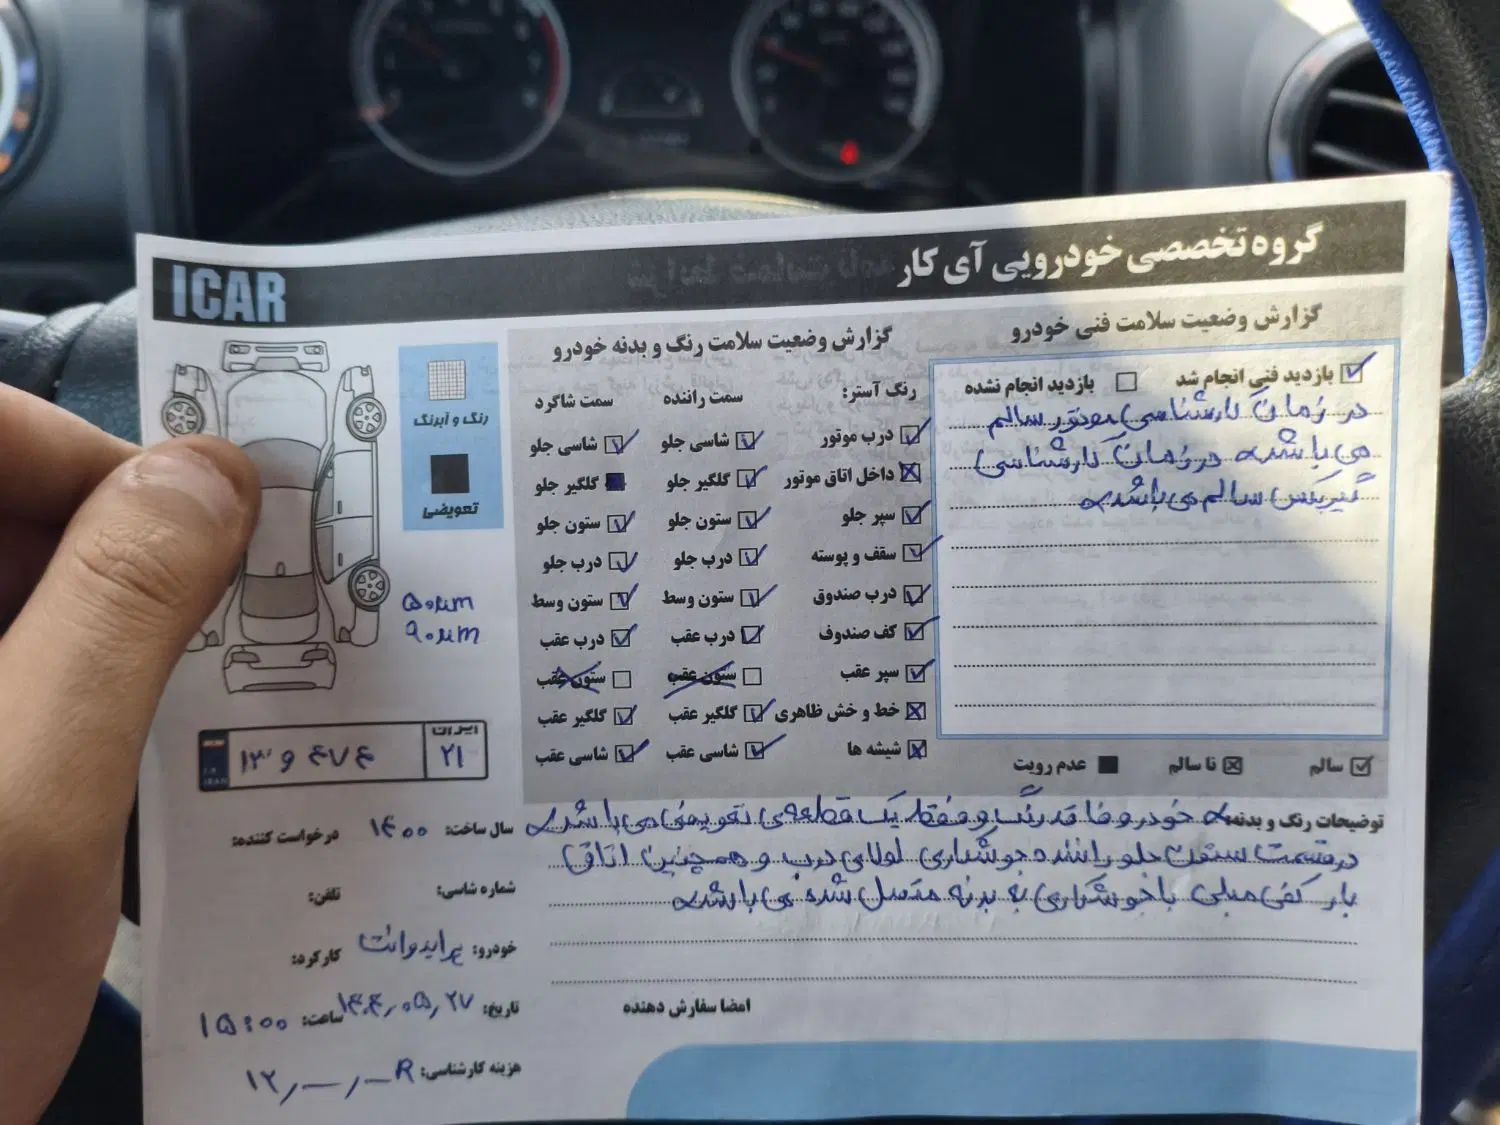 گروه تخصصی خودرویی آی کار
ICAR
گزارش وضعیت سلامت فنی خودرو
بازدید فنی انجام شد
بازدید انجام نشده
در زمان کارشناسی موتور سالم
می باشد در زمان کارشناسی
گیربکس سالم می باشد
سالم
نا سالم
عدم رویت
گزارش وضعیت سلامت رنگ و بدنه خودرو
رنگ آستر: سمت راننده سمت شاگرد
درب موتور شاسی جلو شاسی جلو
داخل اتاق موتور گلگیر جلو گلگیر جلو
سپر جلو ستون جلو ستون جلو
سقف و پوسته درب جلو درب جلو
درب صندوق ستون وسط ستون وسط
کف صندوق درب عقب درب عقب
سپر عقب ستون عقب ستون عقب
خط و خش ظاهری گلگیر عقب گلگیر عقب
شیشه ها شاسی عقب شاسی عقب
رنگ و آبرنگ
تعویضی
۵۰um
۹۰um
ایران
۲۱
توضیحات رنگ و بدنه:
خودرو فاقد رنگ و فقط یک قطعه ی تعویضی می باشد
در قسمت ستون جلو راننده جوشکاری لولای درب و همچنین اتاق
بار کفی مبلی با جوشکاری به بدنه متصل شده می باشد
امضا سفارش دهنده
سال ساخت: ۱۴۰۰
درخواست کننده:
شماره شاسی:
تلفن:
خودرو: پراید وانت
کارکرد:
تاریخ: ۱۴۰۴٫۰۵٫۲۷
ساعت: ۱۵:۰۰
هزینه کارشناسی: